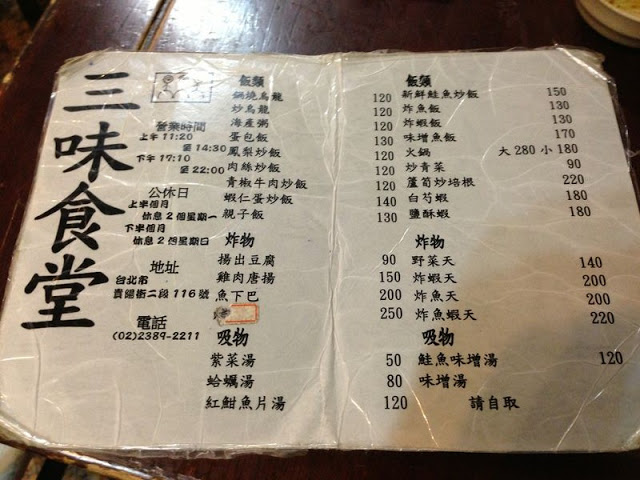 三味食堂
營業時間
上午11:20
至14:30
下午17:10
至22:00
公休日
上半個月
休息2個星期一
下半個月
休息2個星期日
地址
台北市
貴陽街二段116號
電話
(02)2389-2211
飯類
鍋燒烏龍 120
炒烏龍 120
海產粥 120
蛋包飯 130
鳳梨炒飯 120
肉絲炒飯 120
青椒牛肉炒飯 120
蝦仁蛋炒飯 140
親子飯 130
炸物
揚出豆腐 90
雞肉唐揚 150
魚下巴 200
250
吸物
紫菜湯 50
蛤蠣湯 80
紅魽魚片湯 120
飯類
新鮮鮭魚炒飯 150
炸魚飯 130
炸蝦飯 130
味增魚飯 170
火鍋 大280小180
炒青菜 90
蘆筍炒培根 220
白芍蝦 180
鹽酥蝦 180
炸物
野菜天 140
炸蝦天 200
炸魚天 200
炸魚蝦天 220
吸物
鮭魚味增湯 120
味增湯 請自取